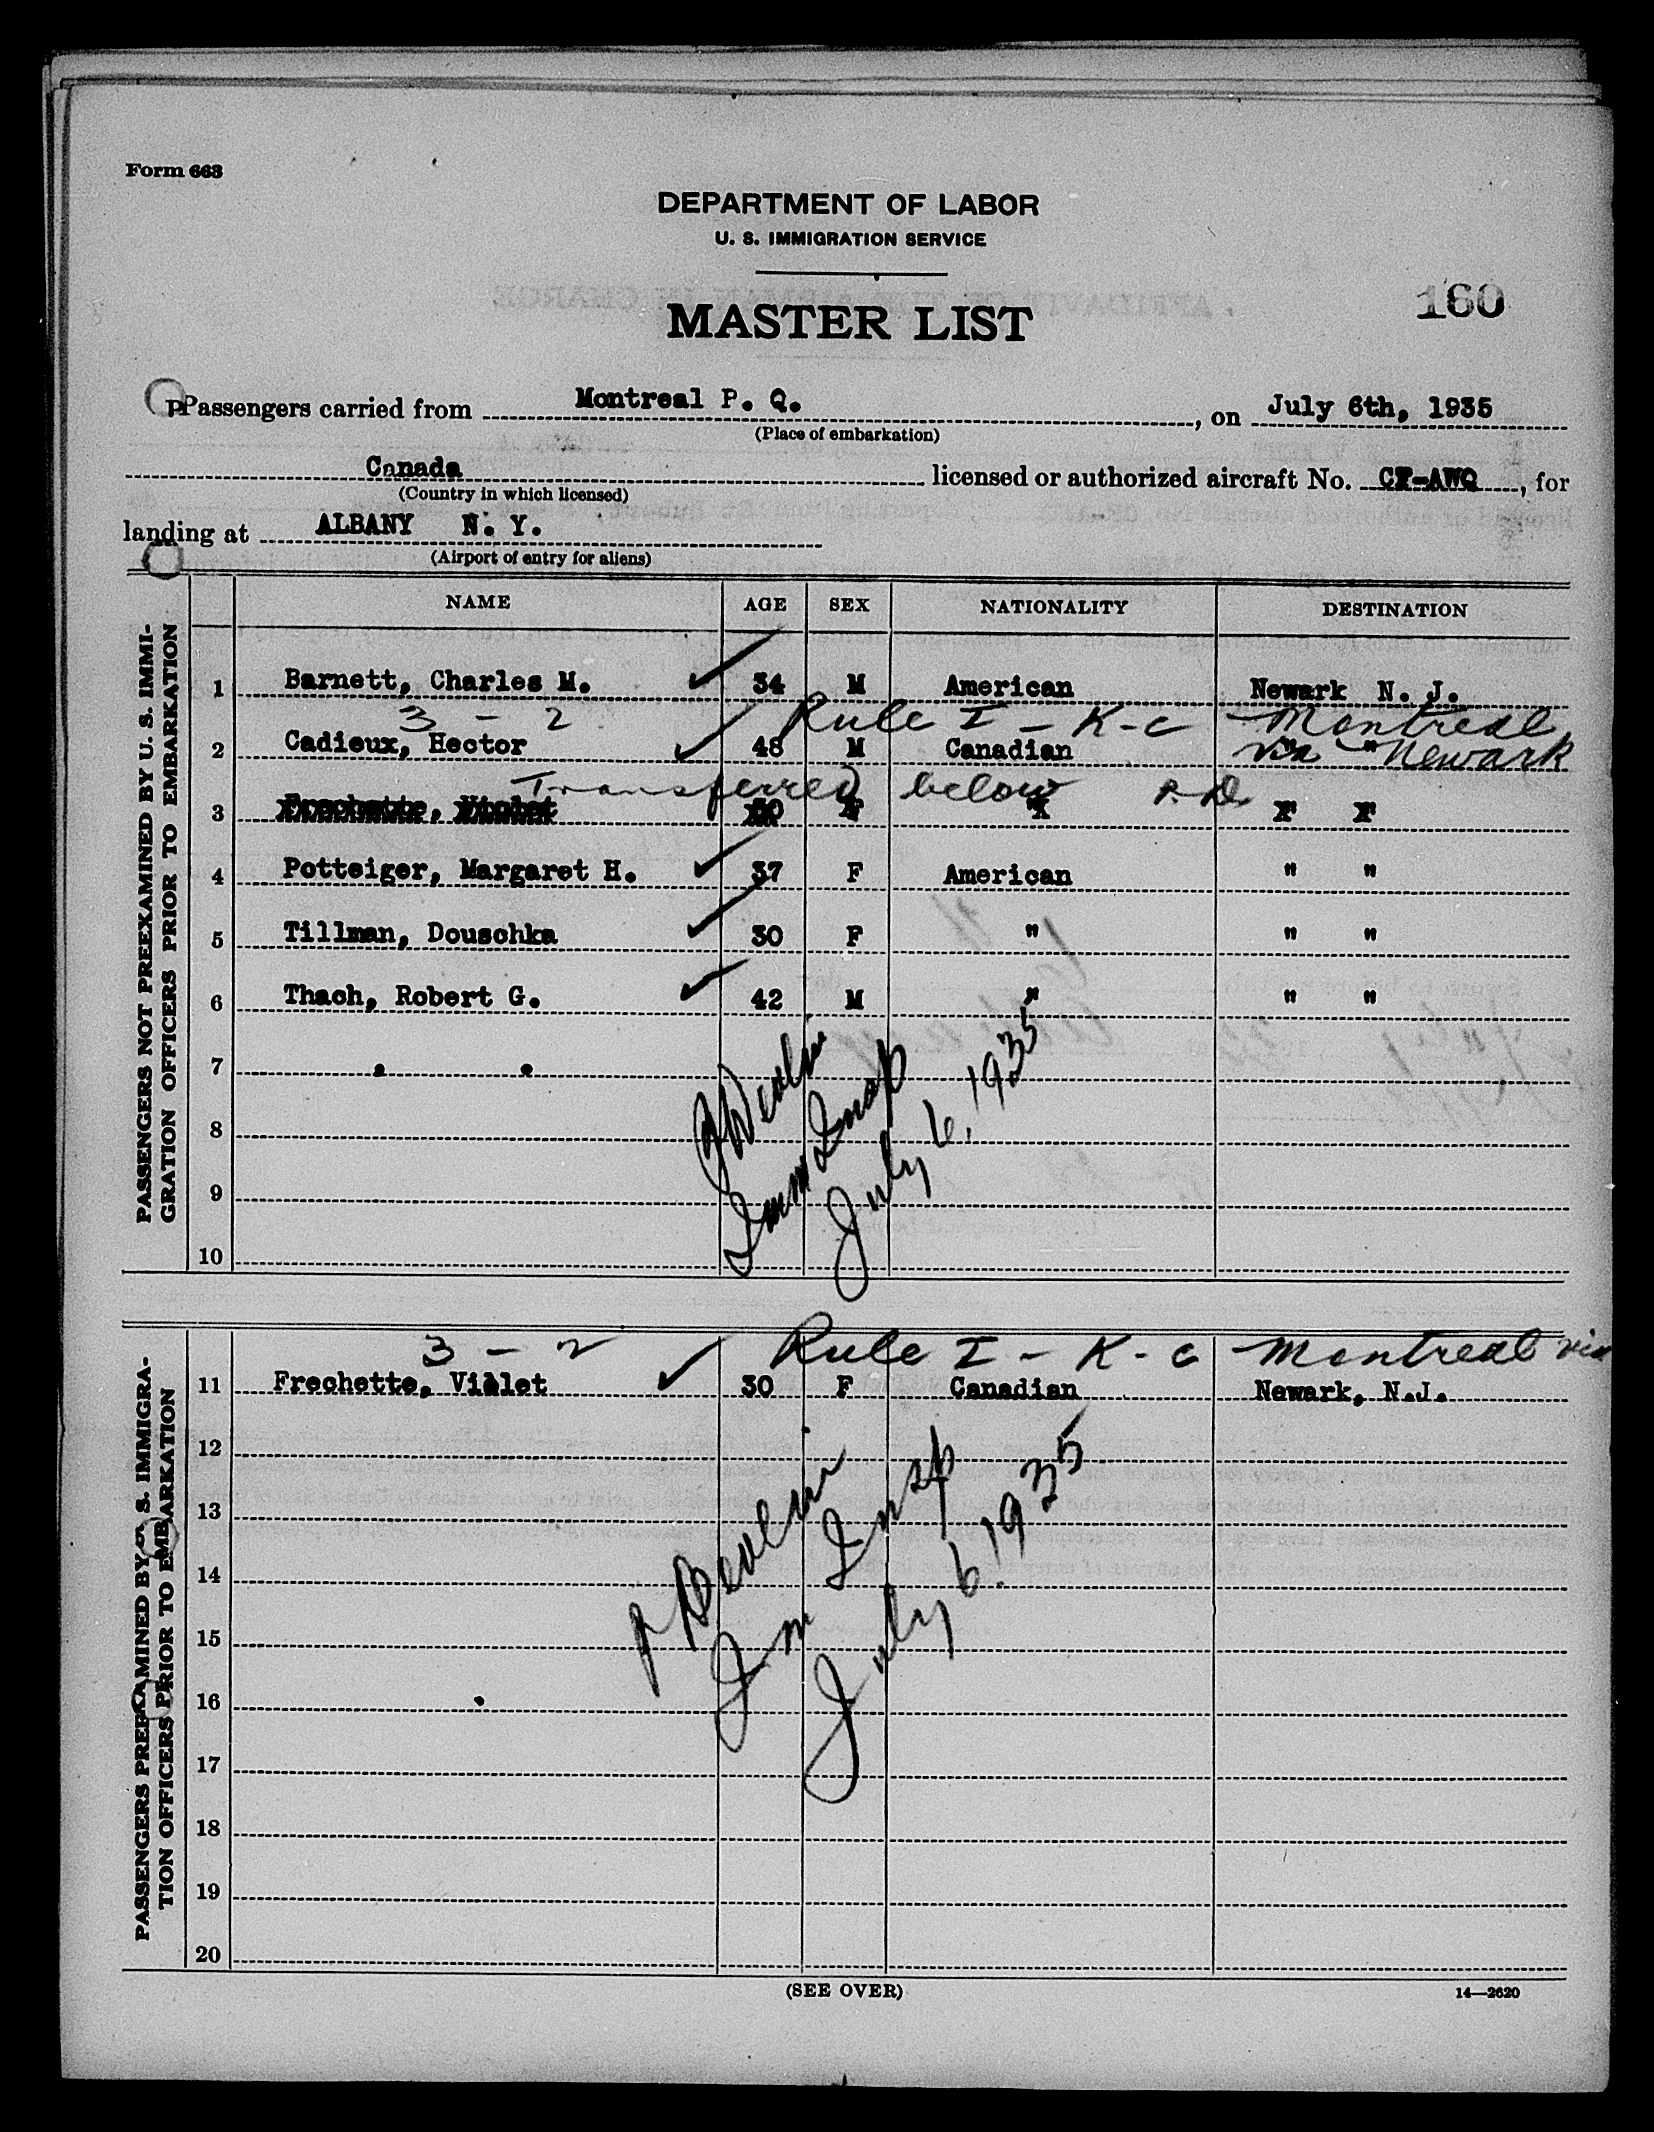 Form 663
DEPARTMENT OF LABOR
U. S. IMMIGRATION SERVICE
MASTER LIST
160
Passengers carried from Montreal P. Q., on July 6th, 1935
(Place of embarkation)
Canada licensed or authorized aircraft No. CF-AWQ, for
(Country in which licensed)
landing at ALBANY N. Y.
(Airport of entry for aliens)
NAME AGE SEX NATIONALITY DESTINATION
PASSENGERS NOT PREEXAMINED BY U. S. IMMI-
GRATION OFFICERS PRIOR TO EMBARKATION
1 Barnett, Charles M. 34 M American Newark N. J.
3 - 2 Rule I - K-c Montreal
2 Cadieux, Hector 48 M Canadian via " Newark
Transferred below P. D.
3 Frechette, Violet 30 F
4 Potteiger, Margaret H. 37 F American " "
5 Tillman, Douschka 30 F " " "
6 Thach, Robert G. 42 M " " "
7
8
9
10
Imm Insp
July 6, 1935
PASSENGERS PREEXAMINED BY U. S. IMMIGRA-
TION OFFICERS PRIOR TO EMBARKATION
3 - 2 Rule I - K-c Montreal via
11 Frechette, Violet 30 F Canadian Newark, N.J.
12
13
14
15
16
17
18
19
20
Im Insp
July 6, 1935
(SEE OVER)
14—2620